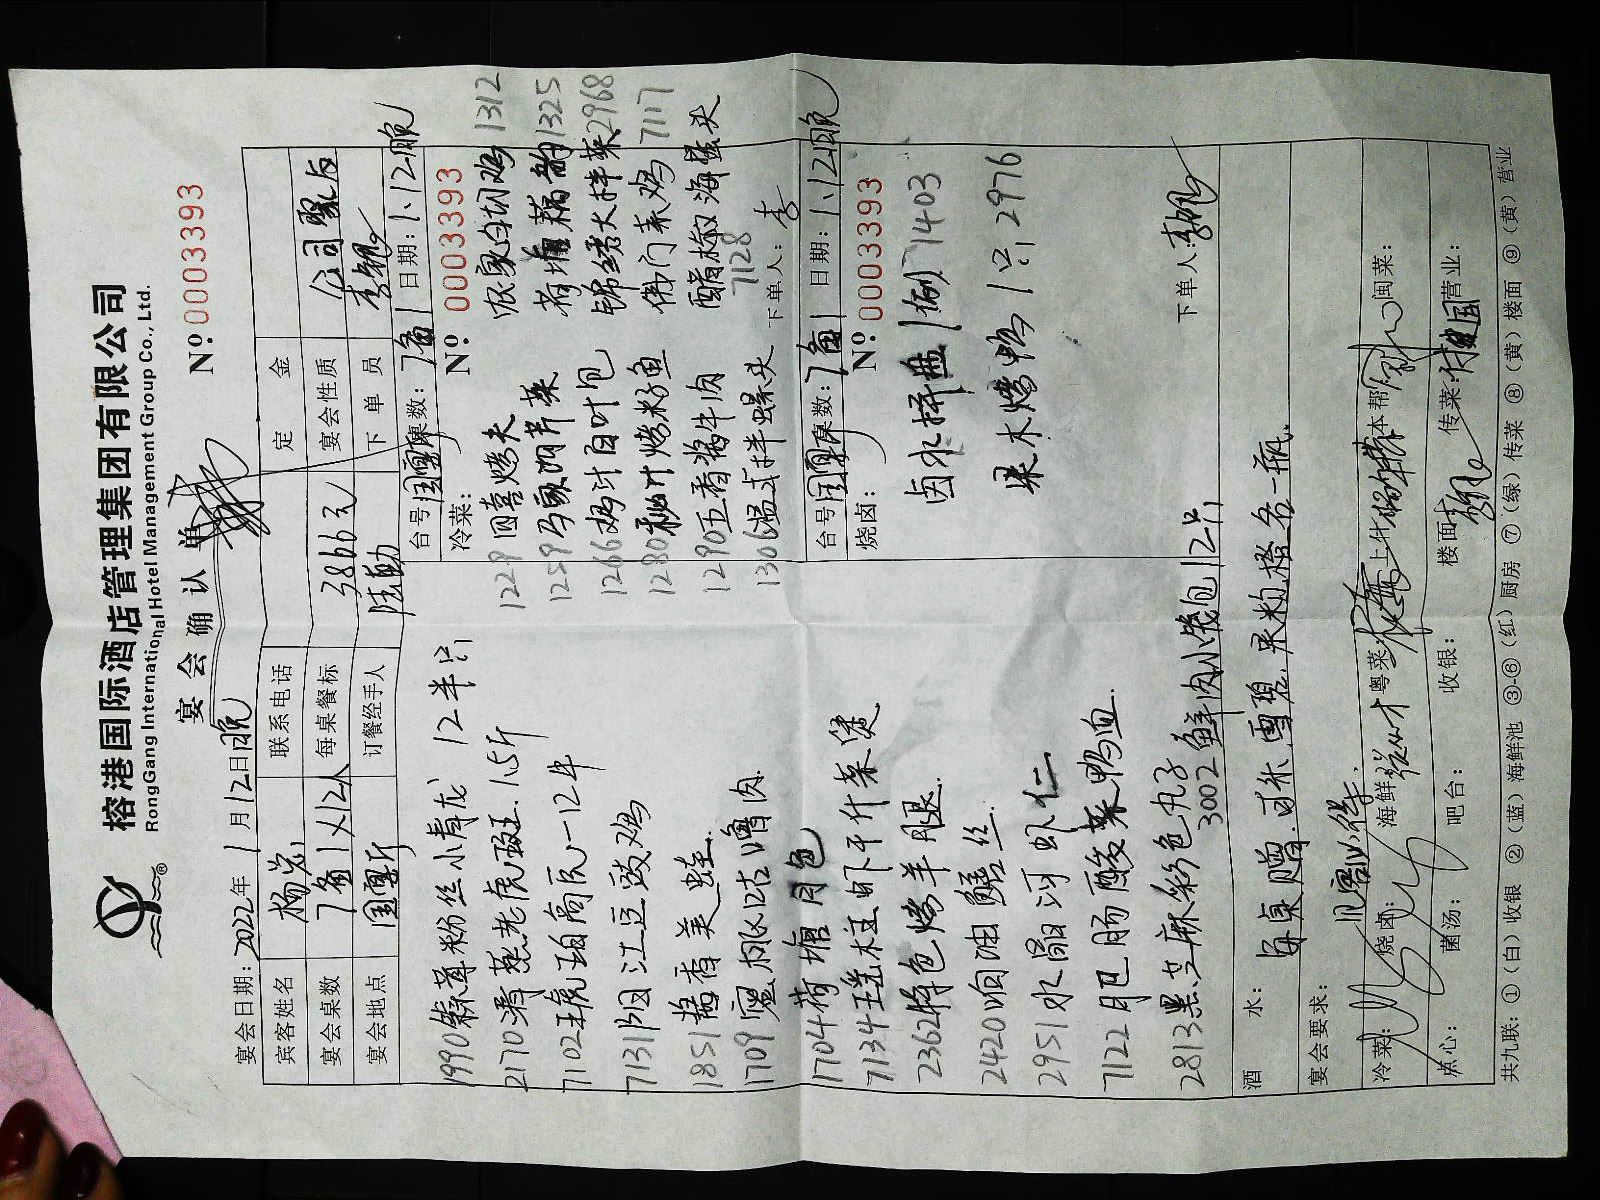 榕港国际酒店管理集团有限公司
RongGang International Hotel Management Group Co., Ltd.
®
宴会确认单
Nº 0003393
宴会日期：2022年1月12日晚
宾客姓名 杨 联系电话 定金
宴会桌数 7备1×12人 每桌餐标 3866元 宴会性质 公司聚会
宴会地点 国宴厅 订餐经手人 陆勤 下单员 李艳
1990蒜蓉粉丝小青龙 12半只
2170清蒸老虎斑 1.5斤
7102琥珀高 12
7131阳江豆豉鸡
1851酱香美蛙
1709蜜桃咕噜肉
1704荷塘月色
7134瑶柱虾干什菜煲
2362特色烤羊腿
2420响油鳝丝
2951水晶河虾仁
7122肥肠酸菜鸭血
2813黑芝麻彩色丸子
3002鲜肉小笼包12只
台号：国宴厅 桌数：7备1 日期：1.12晚
冷菜： Nº 0003393
1229四喜烤夫 农家白切鸡 1312
1259马家沟芹菜 荷塘藕韵 1325
1266鸡汁百叶包 锦绣大拌菜 2968
1280秘汁烤籽鱼 佛门素鸡 7117
1290五香酱牛肉 醋椒海蜇头 7128
1306温式拌螺头 下单人：李
台号：国宴厅 桌数：7备1 日期：1.12晚
烧卤： Nº 0003393
卤水拼盘1例 1403
果木烤鸭1只 2976
下单人：李艳
酒水： 每桌赠可乐.雪碧.果粒橙各一瓶.
宴会要求：
冷菜： 烧卤： 海鲜： 粤菜： 上什： 本帮： 闽菜：
点心： 菌汤： 吧台： 收银： 楼面：李艳 传菜： 营业：
共九联：①（白）收银 ②（蓝）海鲜池 ③-⑥（红）厨房 ⑦（绿）传菜 ⑧（黄）楼面 ⑨（黄）营业